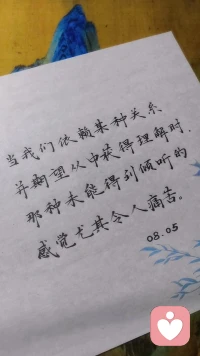 当我们依赖某种关系
并期望从中获得理解时，
那种未能得到倾听的
感觉尤其令人痛苦。
08.05